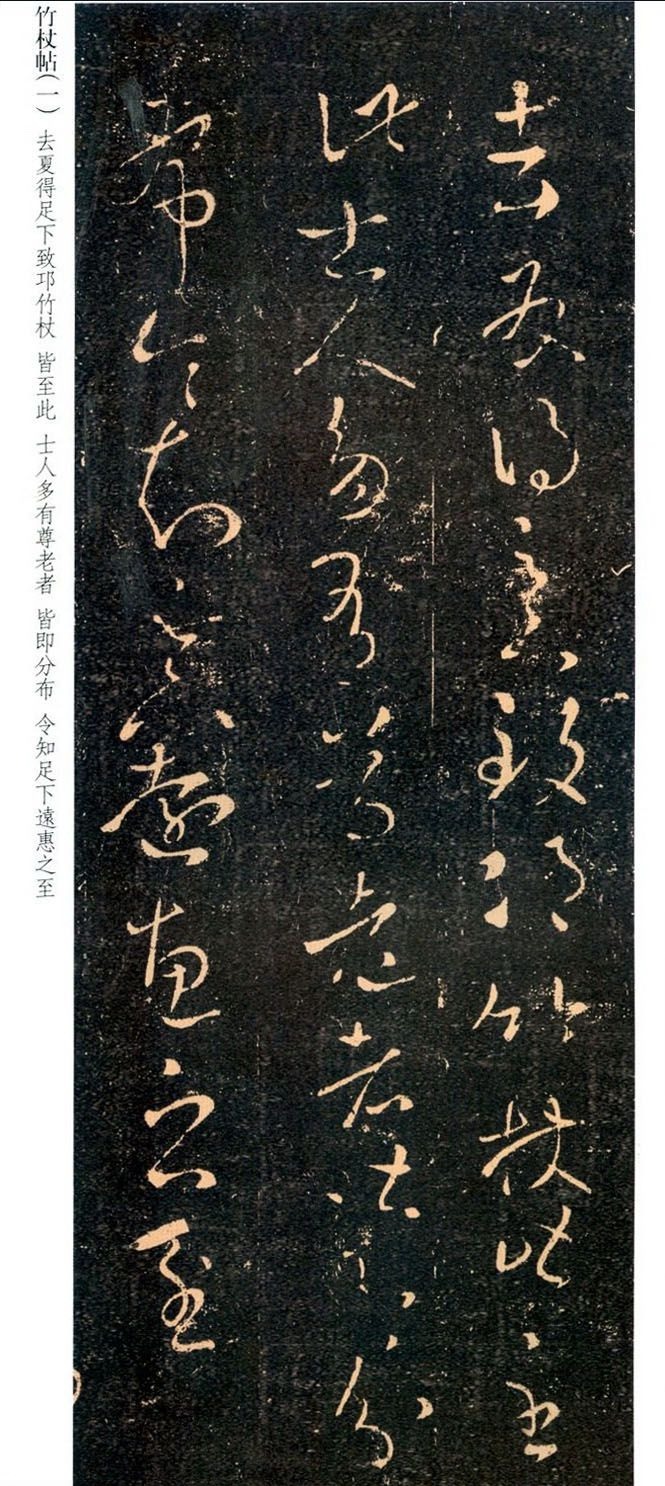 去夏得足下致邛竹杖皆至
此士人多有尊老者皆即分
布令知足下遠惠之至
竹杖帖(一) 去夏得足下致邛竹杖 皆至此 士人多有尊老者 皆即分布 令知足下遠惠之至